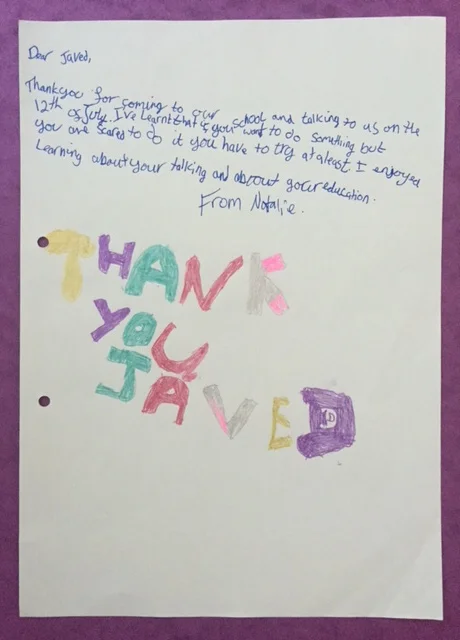 Dear Javed,
Thankyou for coming to our school and talking to us on the
12th of July. I've learnt that if you want to do something but
you are scared to do it you have to try at least I enjoyed
Learning about your talking and aboout your education.
From Natalie.
THANK
YOU
JAVED
D